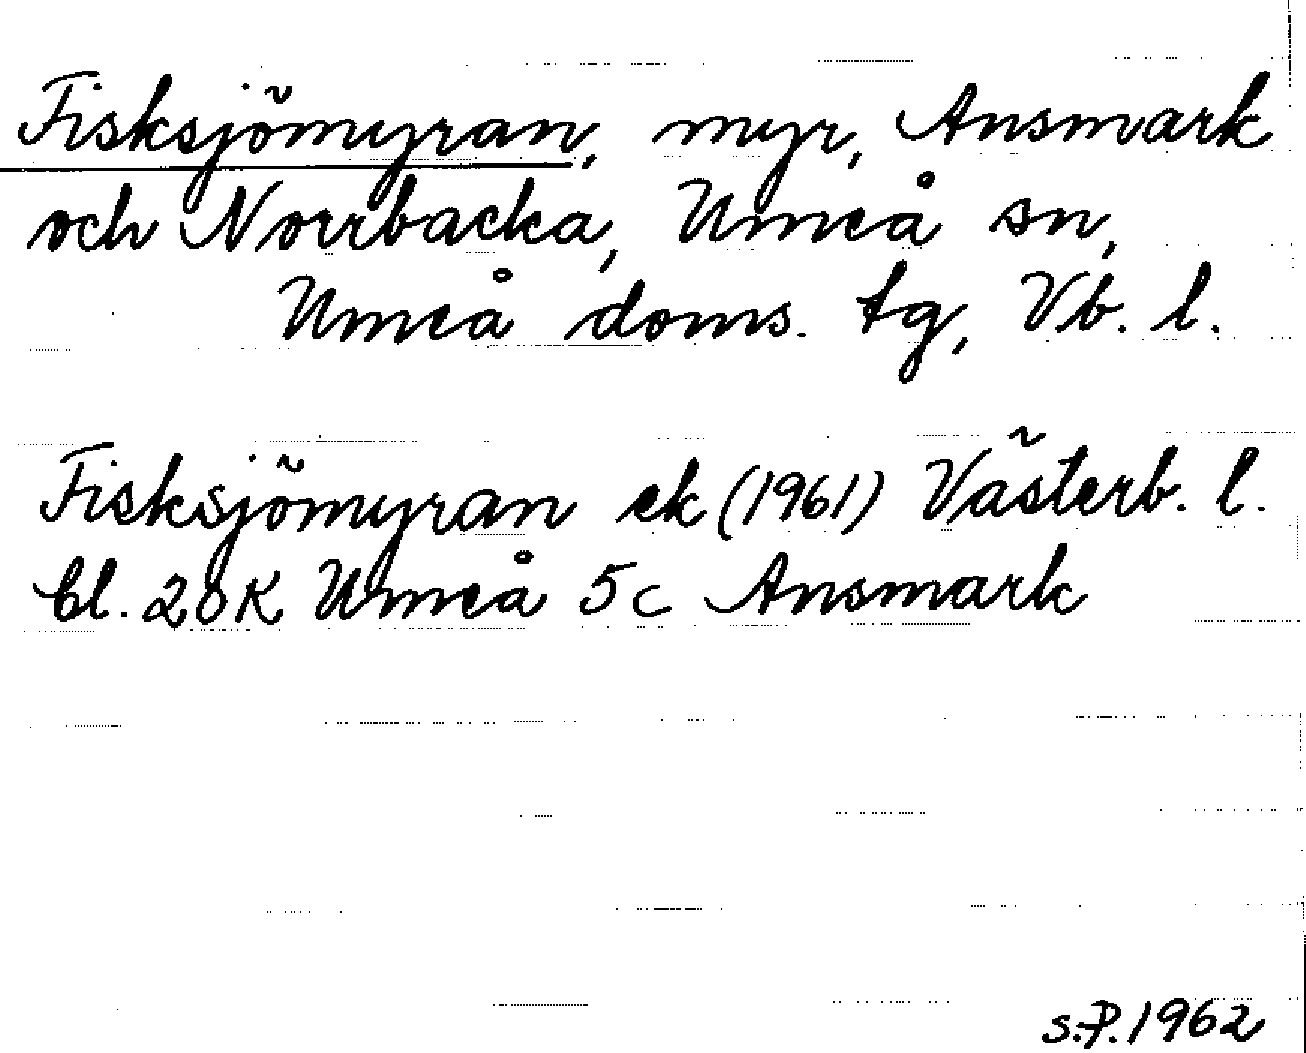 Fisksjömyran, myr, Ansmark
och Norrbacka, Umeå sn,
Umeå doms. tg, Vb. l.
Fisksjömyran ek (1961) Västerb. l.
bl. 20K Umeå 5c Ansmark
S.P. 1962